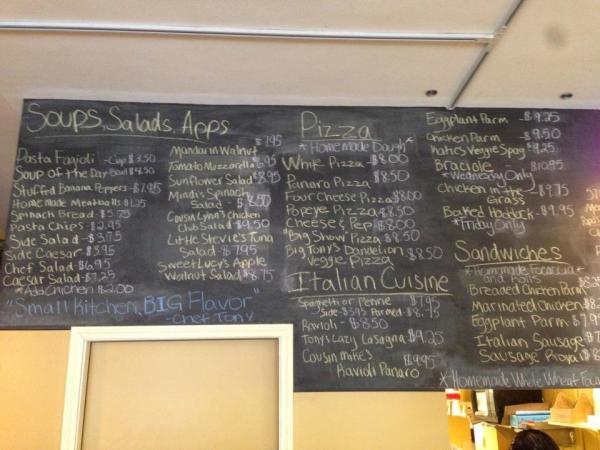 Soups, Salads, Apps
Pasta Fagioli - Cup $3.50
Soup of the Day Bowl $4.50
Stuffed Banana Peppers - $7.95
Home Made Meatballs $1.25
Spinach Bread - $3.75
Pasta Chips - $2.95
Side Salad - $3.75
Side Caesar $3.95
Chef Salad - $6.95
Caesar Salad - $7.25
*Add Chicken $2.00
Mandarin Walnut $7.95
Tomato Mozzarella
Sunflower Salad $8.95
Mindi's Spinach
Salad - $8.50
Cousin Lynn's Chicken
Club Salad $9.50
Little Stevie's Tuna
Salad - $7.95
Sweet Lucy's Apple
Walnut Salad $8.75
"Small Kitchen, BIG Flavor"
- Chef Tony
Pizza
*Homemade Dough*
White Pizza - $8.00
Panaro Pizza $8.50
Four Cheese Pizza $8.00
Popeye Pizza $8.50
Cheese & Pep $8.00
"Big Show" Pizza $8.50
Big Tony's Dandelion
Veggie Pizza $8.50
Italian Cuisine
Spaghetti or Penne $7.95
Side - $3.95 Parmed - $8.75
Ravioli - $8.50
Tony's Lazy Lasagna $9.25
Cousin Mike's $9.95
Ravioli Panaro
Eggplant Parm - $9.25
Chicken Parm - $9.50
Kato's Veggie Spag $9.25
Braciole $10.95
*Wednesday Only*
Chicken in the - $9.75
Grass
Baked Haddock - $9.95
*Friday Only*
Sandwiches
*Homemade Focaccia*
and Rolls
Breaded Chicken Parm
Marinated Chicken
Eggplant Parm - $7.95
Italian Sausage
Sausage Royal
*Homemade Whole Wheat